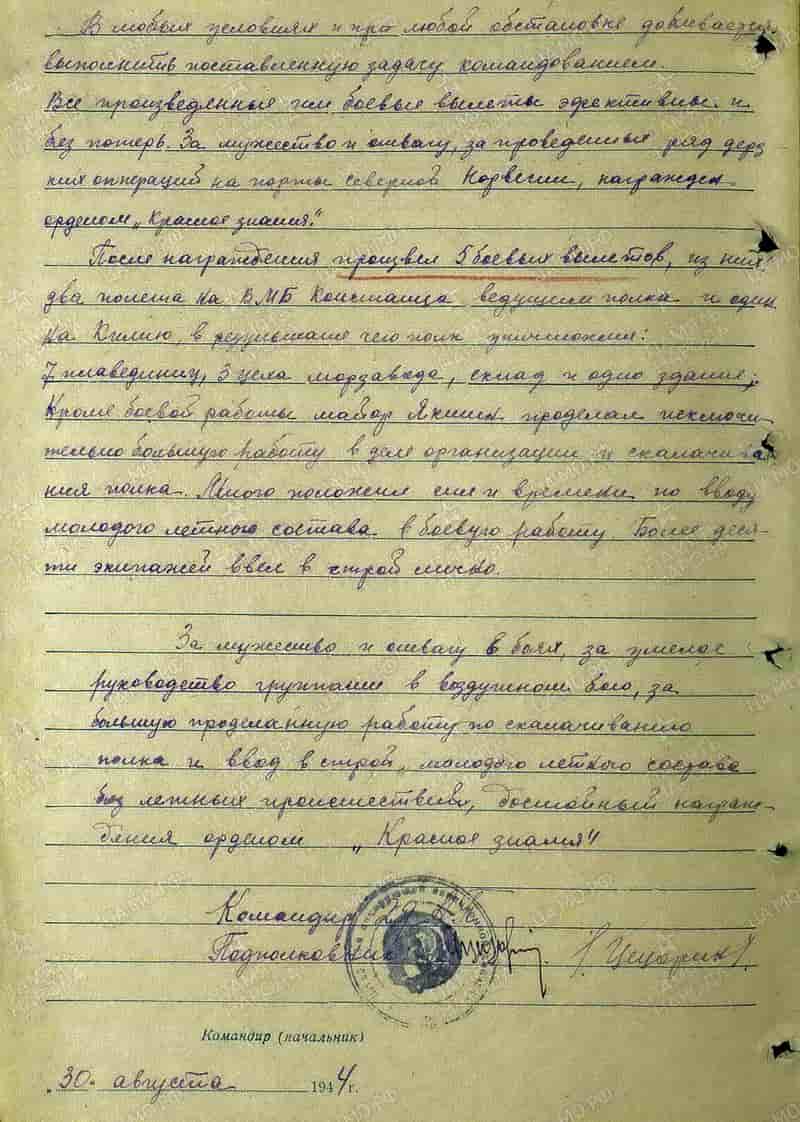 В любых условиях и при любой обстановке добивается
выполнить поставленную задачу командованием.
Все произведенные им боевые вылеты эфективны и
без потерь. За мужество и отвагу, за проведенных ряд дерз
ких операций на порты северной Норвегии, награжден
орденом „Красное знамя."
После награждения произвел 5 боевых вылетов, из них:
два полета на ВМБ Констанца ведущим полка и один
на Килию, в результате чего полк уничтожил:
7 плаведениц, 3 цеха морзавода, склад и одно здание;
Кроме боевой работы майор Якишин проделал исключи
тельно большую работу в деле организации и сколачива
ния полка. Много положил сил и времени по вводу
молодого летного состава в боевую работу. Более деся-
ти экипажей ввел в строй лично.
За мужество и отвагу в боях, за умелое
руководство группами в воздушном бою, за
большую проделанную работу по сколачиванию
полка и ввод в строй, молодого летного состава
без летных происшествий, достойный награж-
дения орденом „Красное знамя"
Командир 29
Подполковник /Цецорин/.
Командир (начальник)
„30" августа 1944 г.